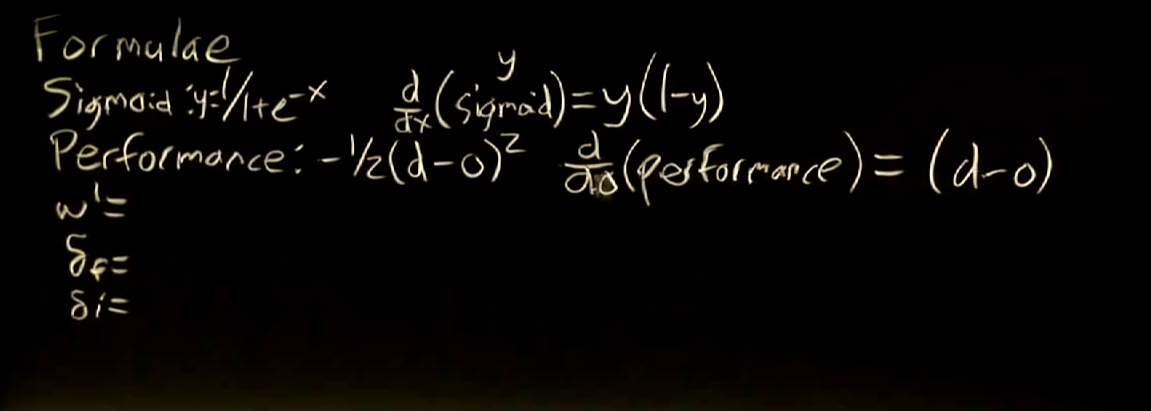 Formulae
Sigmoid: y=1/1+e^-x d/dx(sigmoid)=y(1-y)
y
Performance: -1/2(d-o)² d/do(performance)=(d-o)
w'=
δf=
δi=